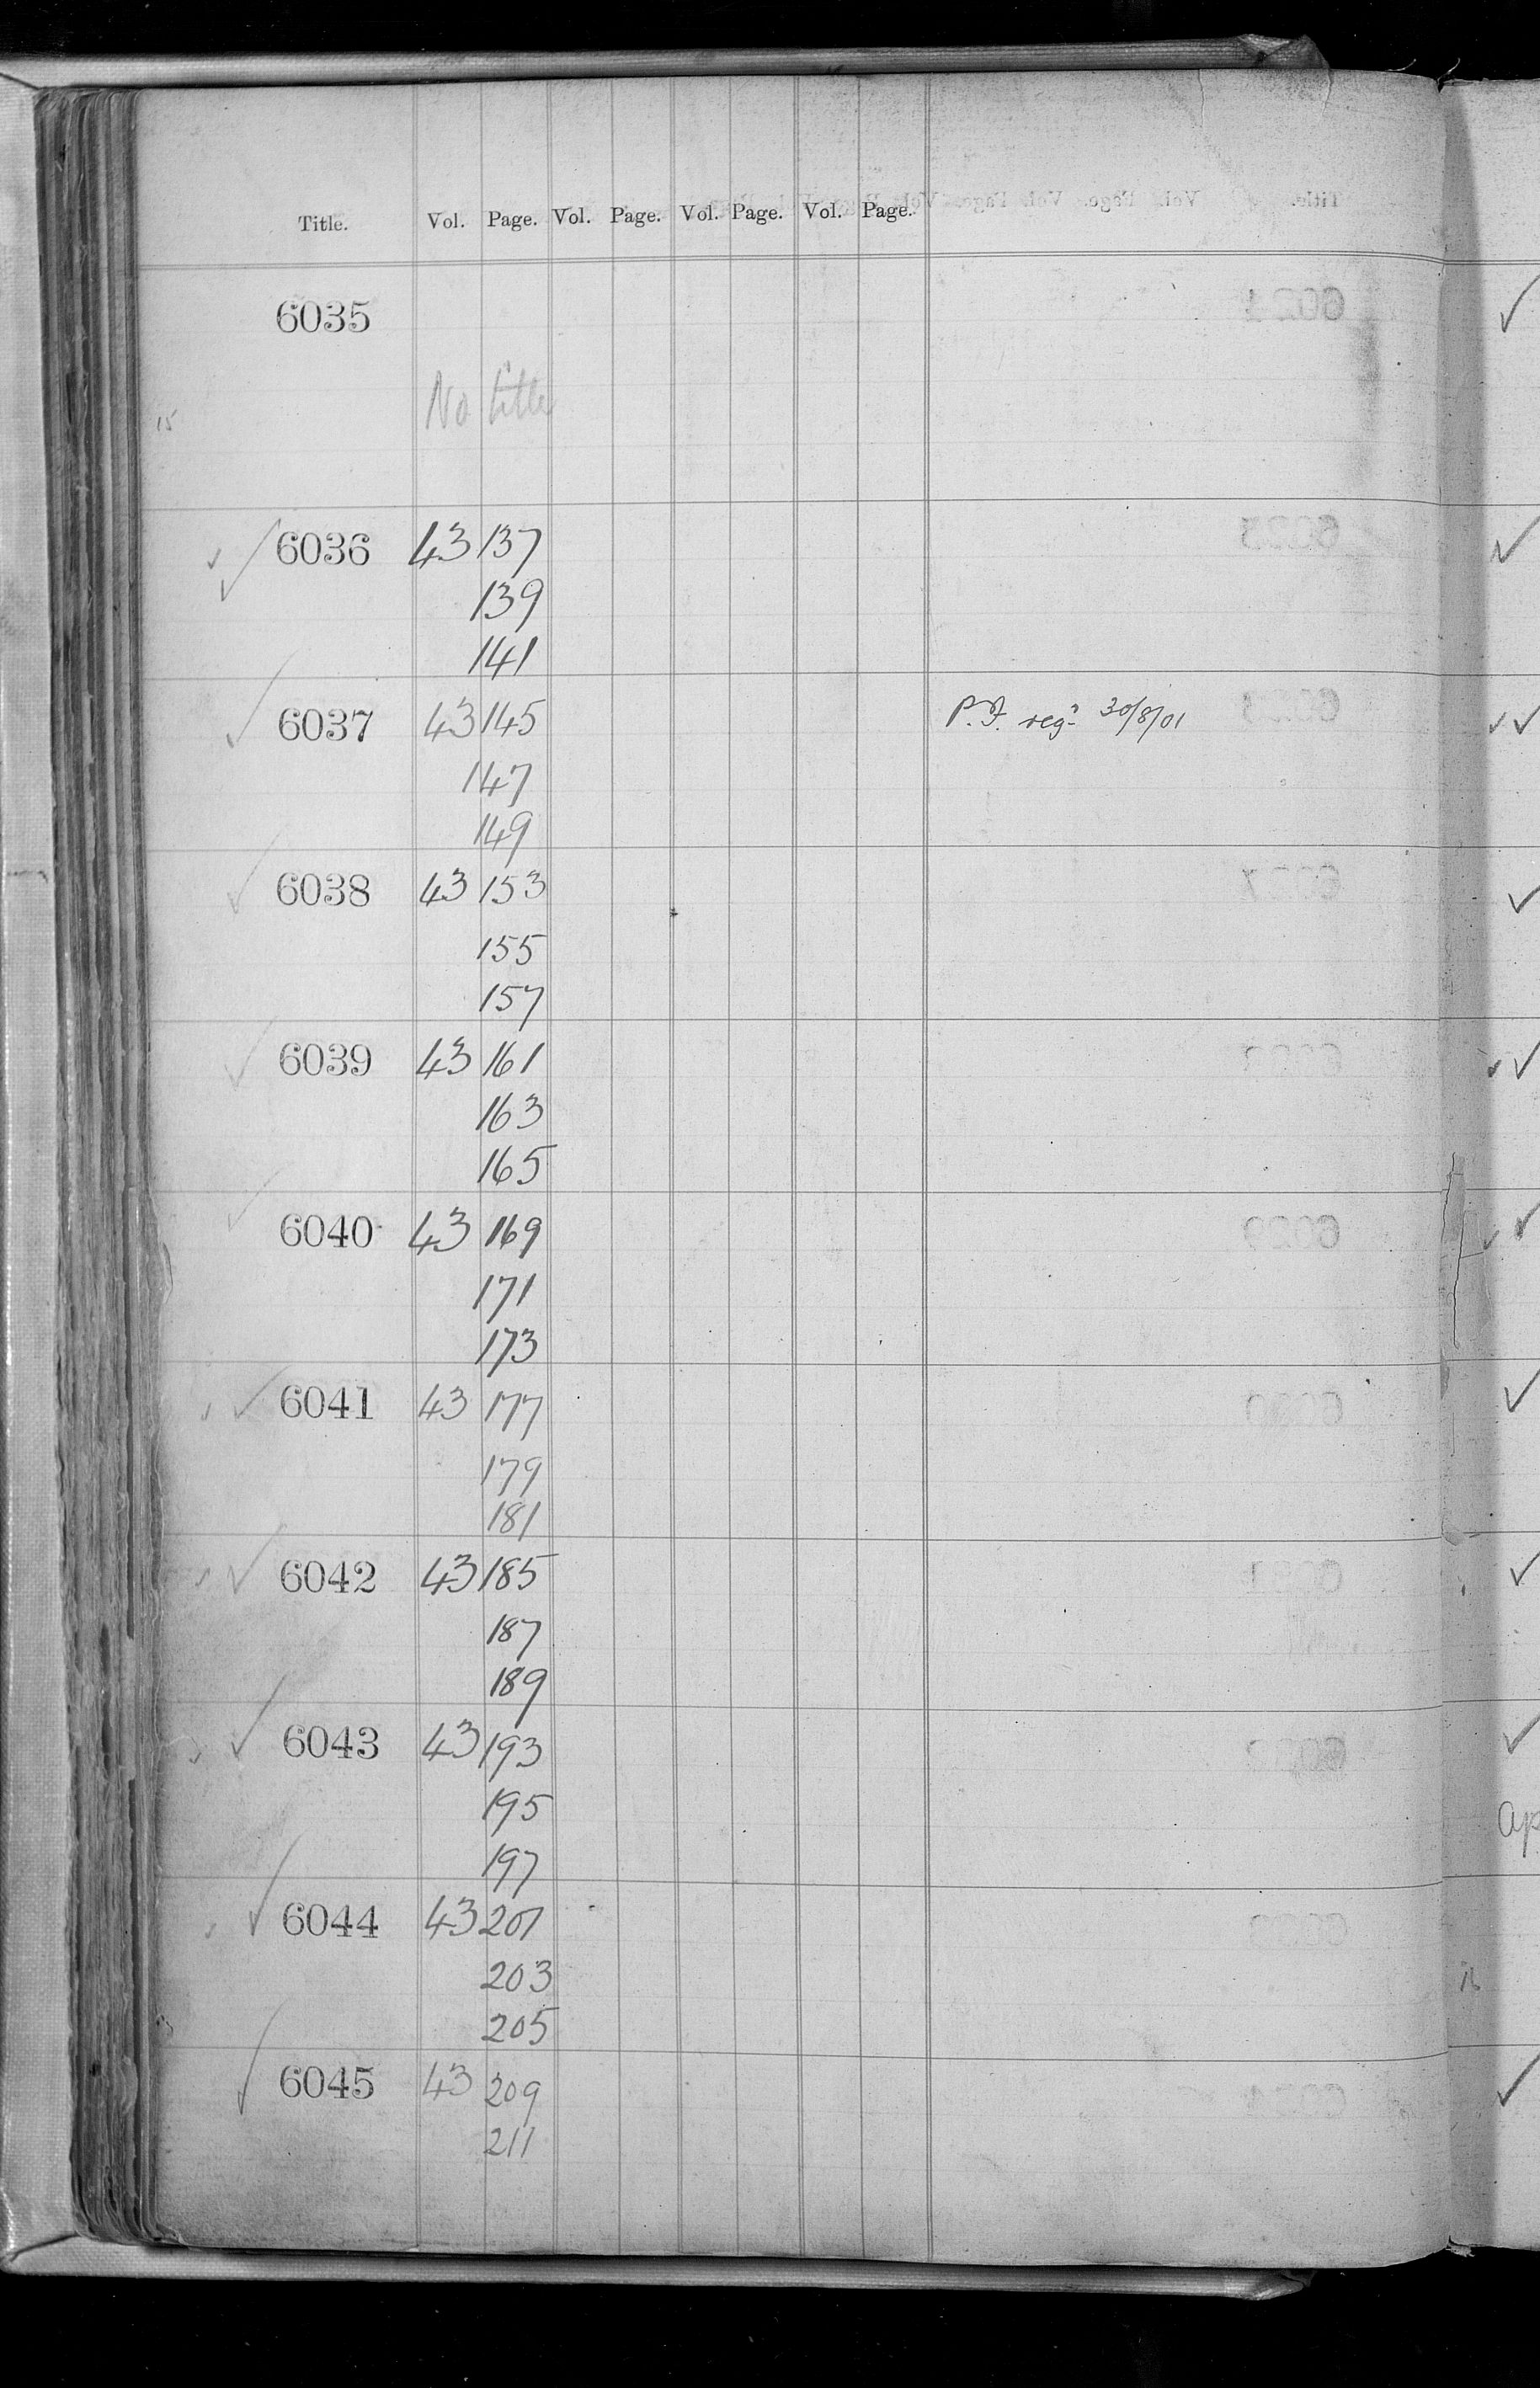 Title. Vol. Page. Vol. Page. Vol. Page. Vol. Page.
6035
No title
15
6036 43 137
139
141
6037 43 145 P.F. regd 30/8/01
147
149
6038 43 153
155
157
6039 43 161
163
165
6040 43 169
171
173
6041 43 177
179
181
6042 43 185
187
189
6043 43 193
195
197
6044 43 201
203
205
6045 43 209
211